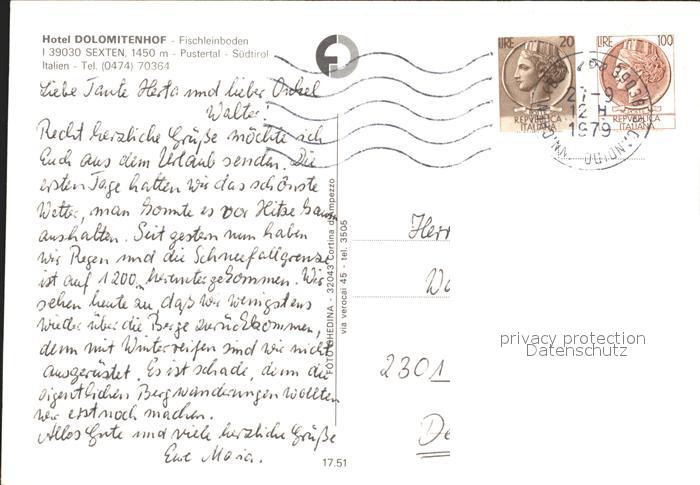 Hotel DOLOMITENHOF - Fischleinboden
I 39030 SEXTEN, 1450 m - Pustertal - Südtirol
Italien - Tel. (0474) 70364
Liebe Tante Herta und lieber Onkel
Walter!
Recht herzliche Grüße möchte ich
Euch aus dem Urlaub senden. Die
ersten Tage hatten wir das schönste
Wetter, man konnte es vor Hitze kaum
aushalten. Seit gestern nun haben
wir Regen und die Schneefallgrenze
ist auf 1200 m heruntergekommen. Wir
sehen heute zu daß wir wenigstens
wieder über die Berge zurückkommen,
denn mit Winterreifen sind wir nicht
ausgerüstet. Es ist schade, denn die
eigentlichen Bergwanderungen wollten
wir erst noch machen.
Alles Gute und viele herzliche Grüße
Eure Maria.
FOTO GHEDINA - 32043 Cortina d'Ampezzo
via verocai 45 - tel. 3505
17.51
LIRE 20
REPVBBLICA
ITALIANA
LIRE 100
REPVBBLICA
ITALIANA
27-9
12 H
1979
Herr
Wa
2301
De
privacy protection
Datenschutz